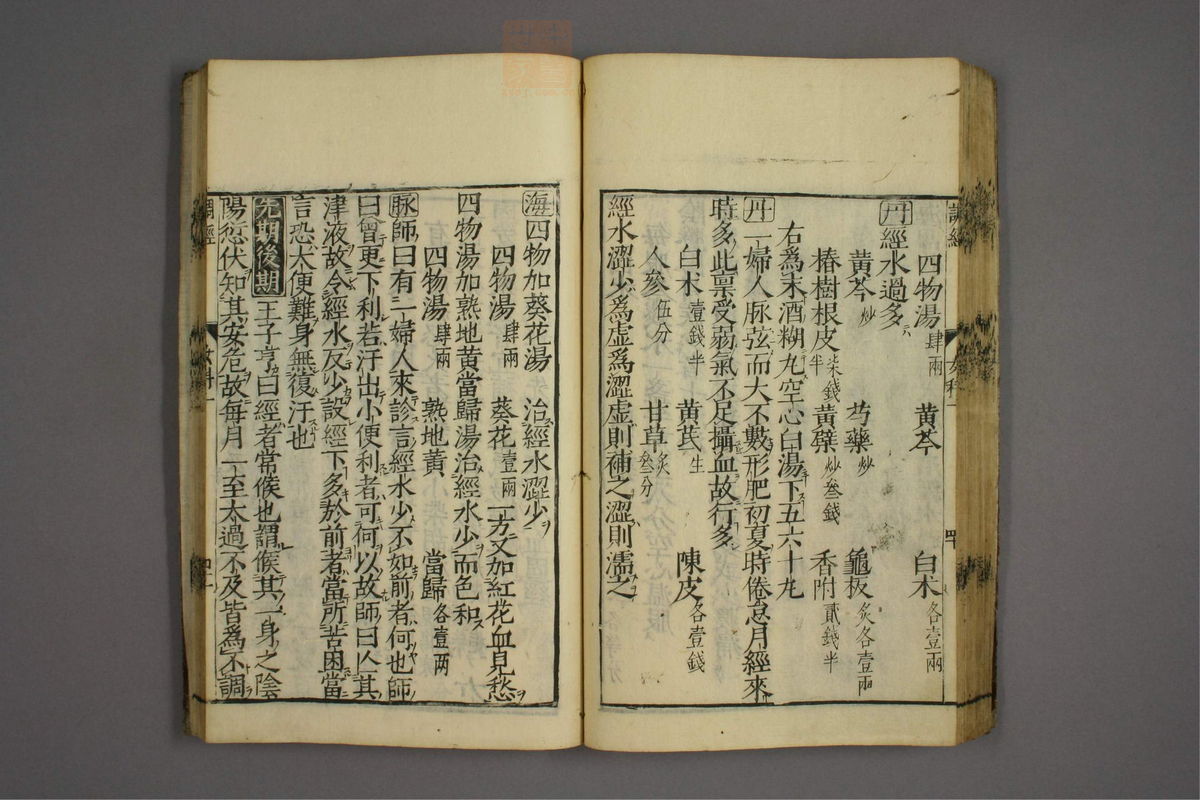 四物湯肆兩 黃芩 白朮各壹兩
丹經水過多
黃芩炒 芍藥炒 龜板炙各壹兩
椿樹根皮柒錢半 黃蘗炒叁錢 香附貳錢半
右爲末酒糊丸空心白湯下五六十丸
丹一婦人脉弦而大不數形肥初夏時倦怠月經來
時多此禀受弱氣不足攝血故行多
白朮壹錢半 黃芪生 陳皮各壹錢
人參伍分 甘草炙叁分
經水澀少爲虛爲澀虛則補之澀則濡之
海四物加葵花湯 治經水澀少
四物湯肆兩 葵花壹兩 一方又加紅花血見愁
四物湯加熟地黃當歸湯治經水少而色和
四物湯肆兩 熟地黃 當歸各壹兩
脉師曰有一婦人來診言經水少不如前者何也師
曰曾更下利若汗出小便利者可何以故師曰亡其
津液故令經水反少設經下多於前者當所苦困當
言恐大便難身無復汗也
先期後期 王子亨曰經者常候也謂候其一身之陰
陽愆伏知其安危故每月一至太過不及皆爲不調
調經
女科一